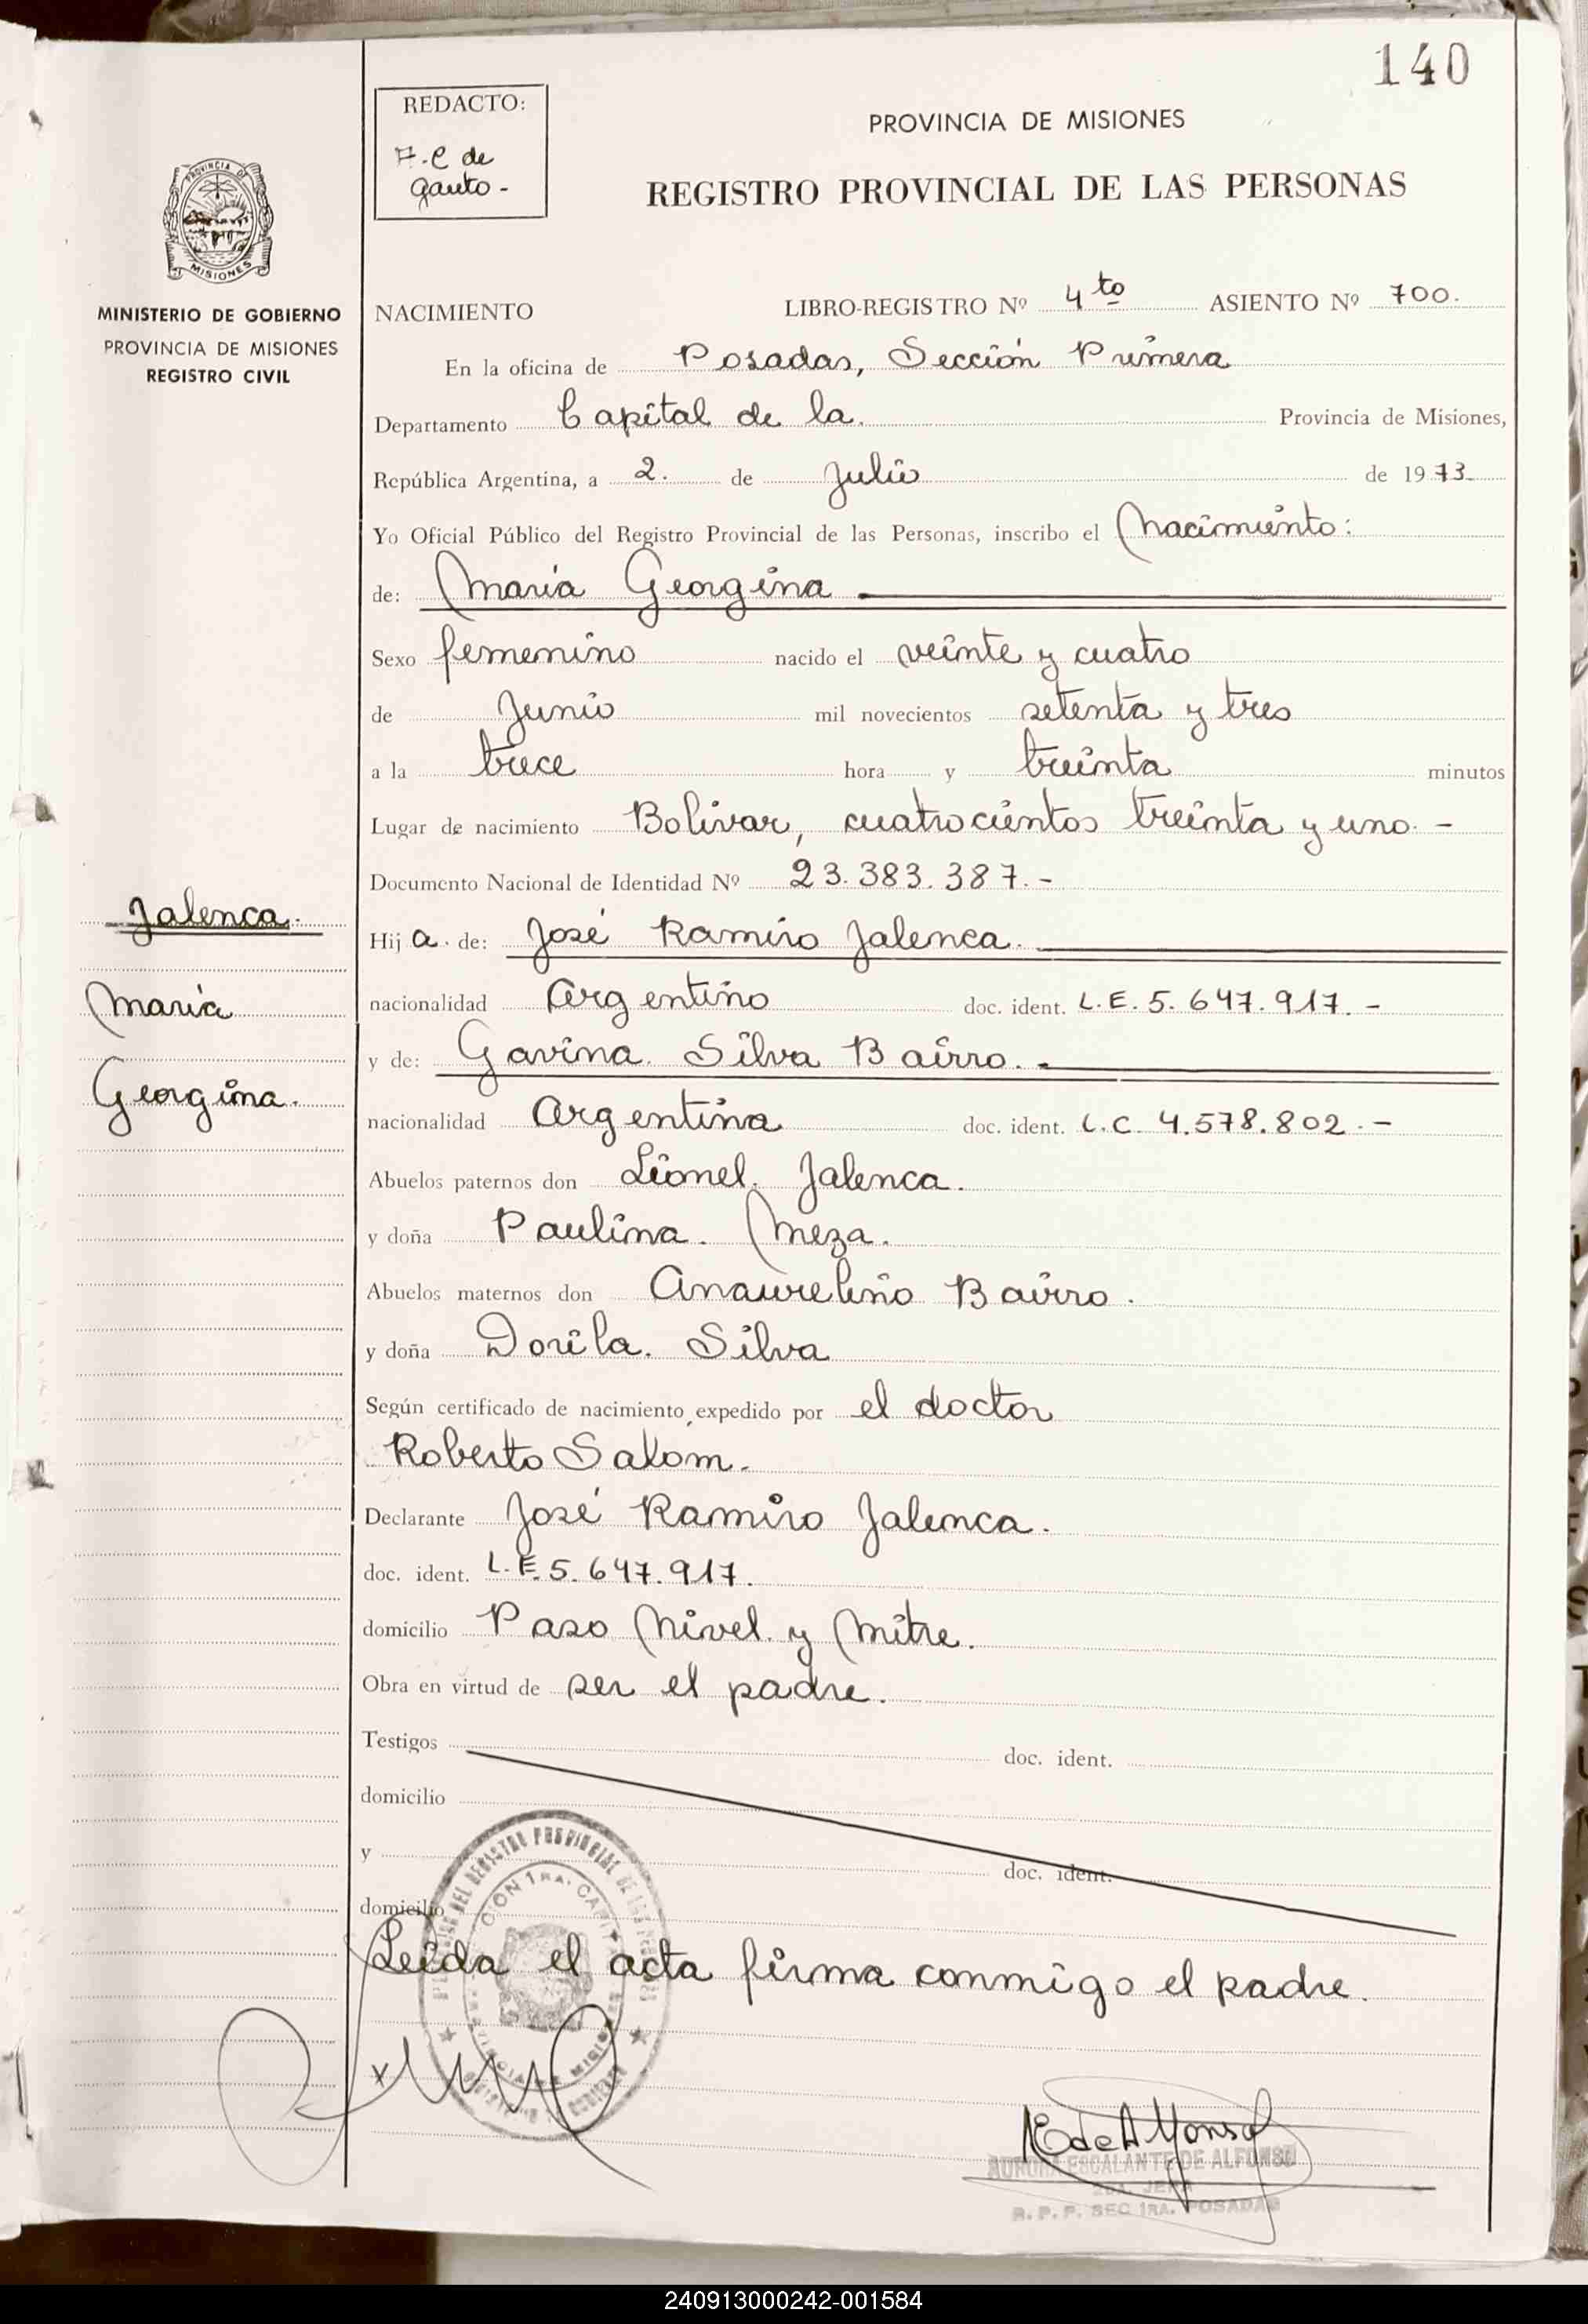 140
REDACTO:
A.C de
Gauto -
PROVINCIA DE MISIONES
REGISTRO PROVINCIAL DE LAS PERSONAS
PROVINCIA DE
MISIONES
MINISTERIO DE GOBIERNO
PROVINCIA DE MISIONES
REGISTRO CIVIL
NACIMIENTO LIBRO-REGISTRO Nº 4to ASIENTO Nº 700.
En la oficina de Posadas, Sección Primera
Departamento Capital de la. Provincia de Misiones,
República Argentina, a 2. de Julio de 1973.
Yo Oficial Público del Registro Provincial de las Personas, inscribo el Nacimiento:
de: María Georgina
Sexo femenino nacido el veinte y cuatro
de Junio mil novecientos setenta y tres
a la trece hora y treinta minutos
Lugar de nacimiento Bolivar, cuatrocientos treinta y uno. -
Documento Nacional de Identidad Nº 23.383.387. -
Jalenca.
María
Georgina.
Hij a. de: José Ramiro Jalenca.
nacionalidad Argentino doc. ident. L.E. 5.647.917. -
y de: Gavina. Silva Bairro. -
nacionalidad Argentina doc. ident. L.C. 4.578.802. -
Abuelos paternos don Lionel. Jalenca.
y doña Paulina. Meza.
Abuelos maternos don Anaurelino Bairro.
y doña Dorila. Silva
Según certificado de nacimiento expedido por el doctor
Roberto Salom.
Declarante José Ramiro Jalenca.
doc. ident. L.E. 5.647.917.
domicilio Paso Nivel. y Mitre.
Obra en virtud de ser el padre.
Testigos doc. ident.
domicilio
y doc. ident.
domicilio
Leida el acta firma conmigo el padre.
AURORA ESCALANTE DE ALFONSO
R. P. P. SEC 1RA. POSADAS
240913000242-001584